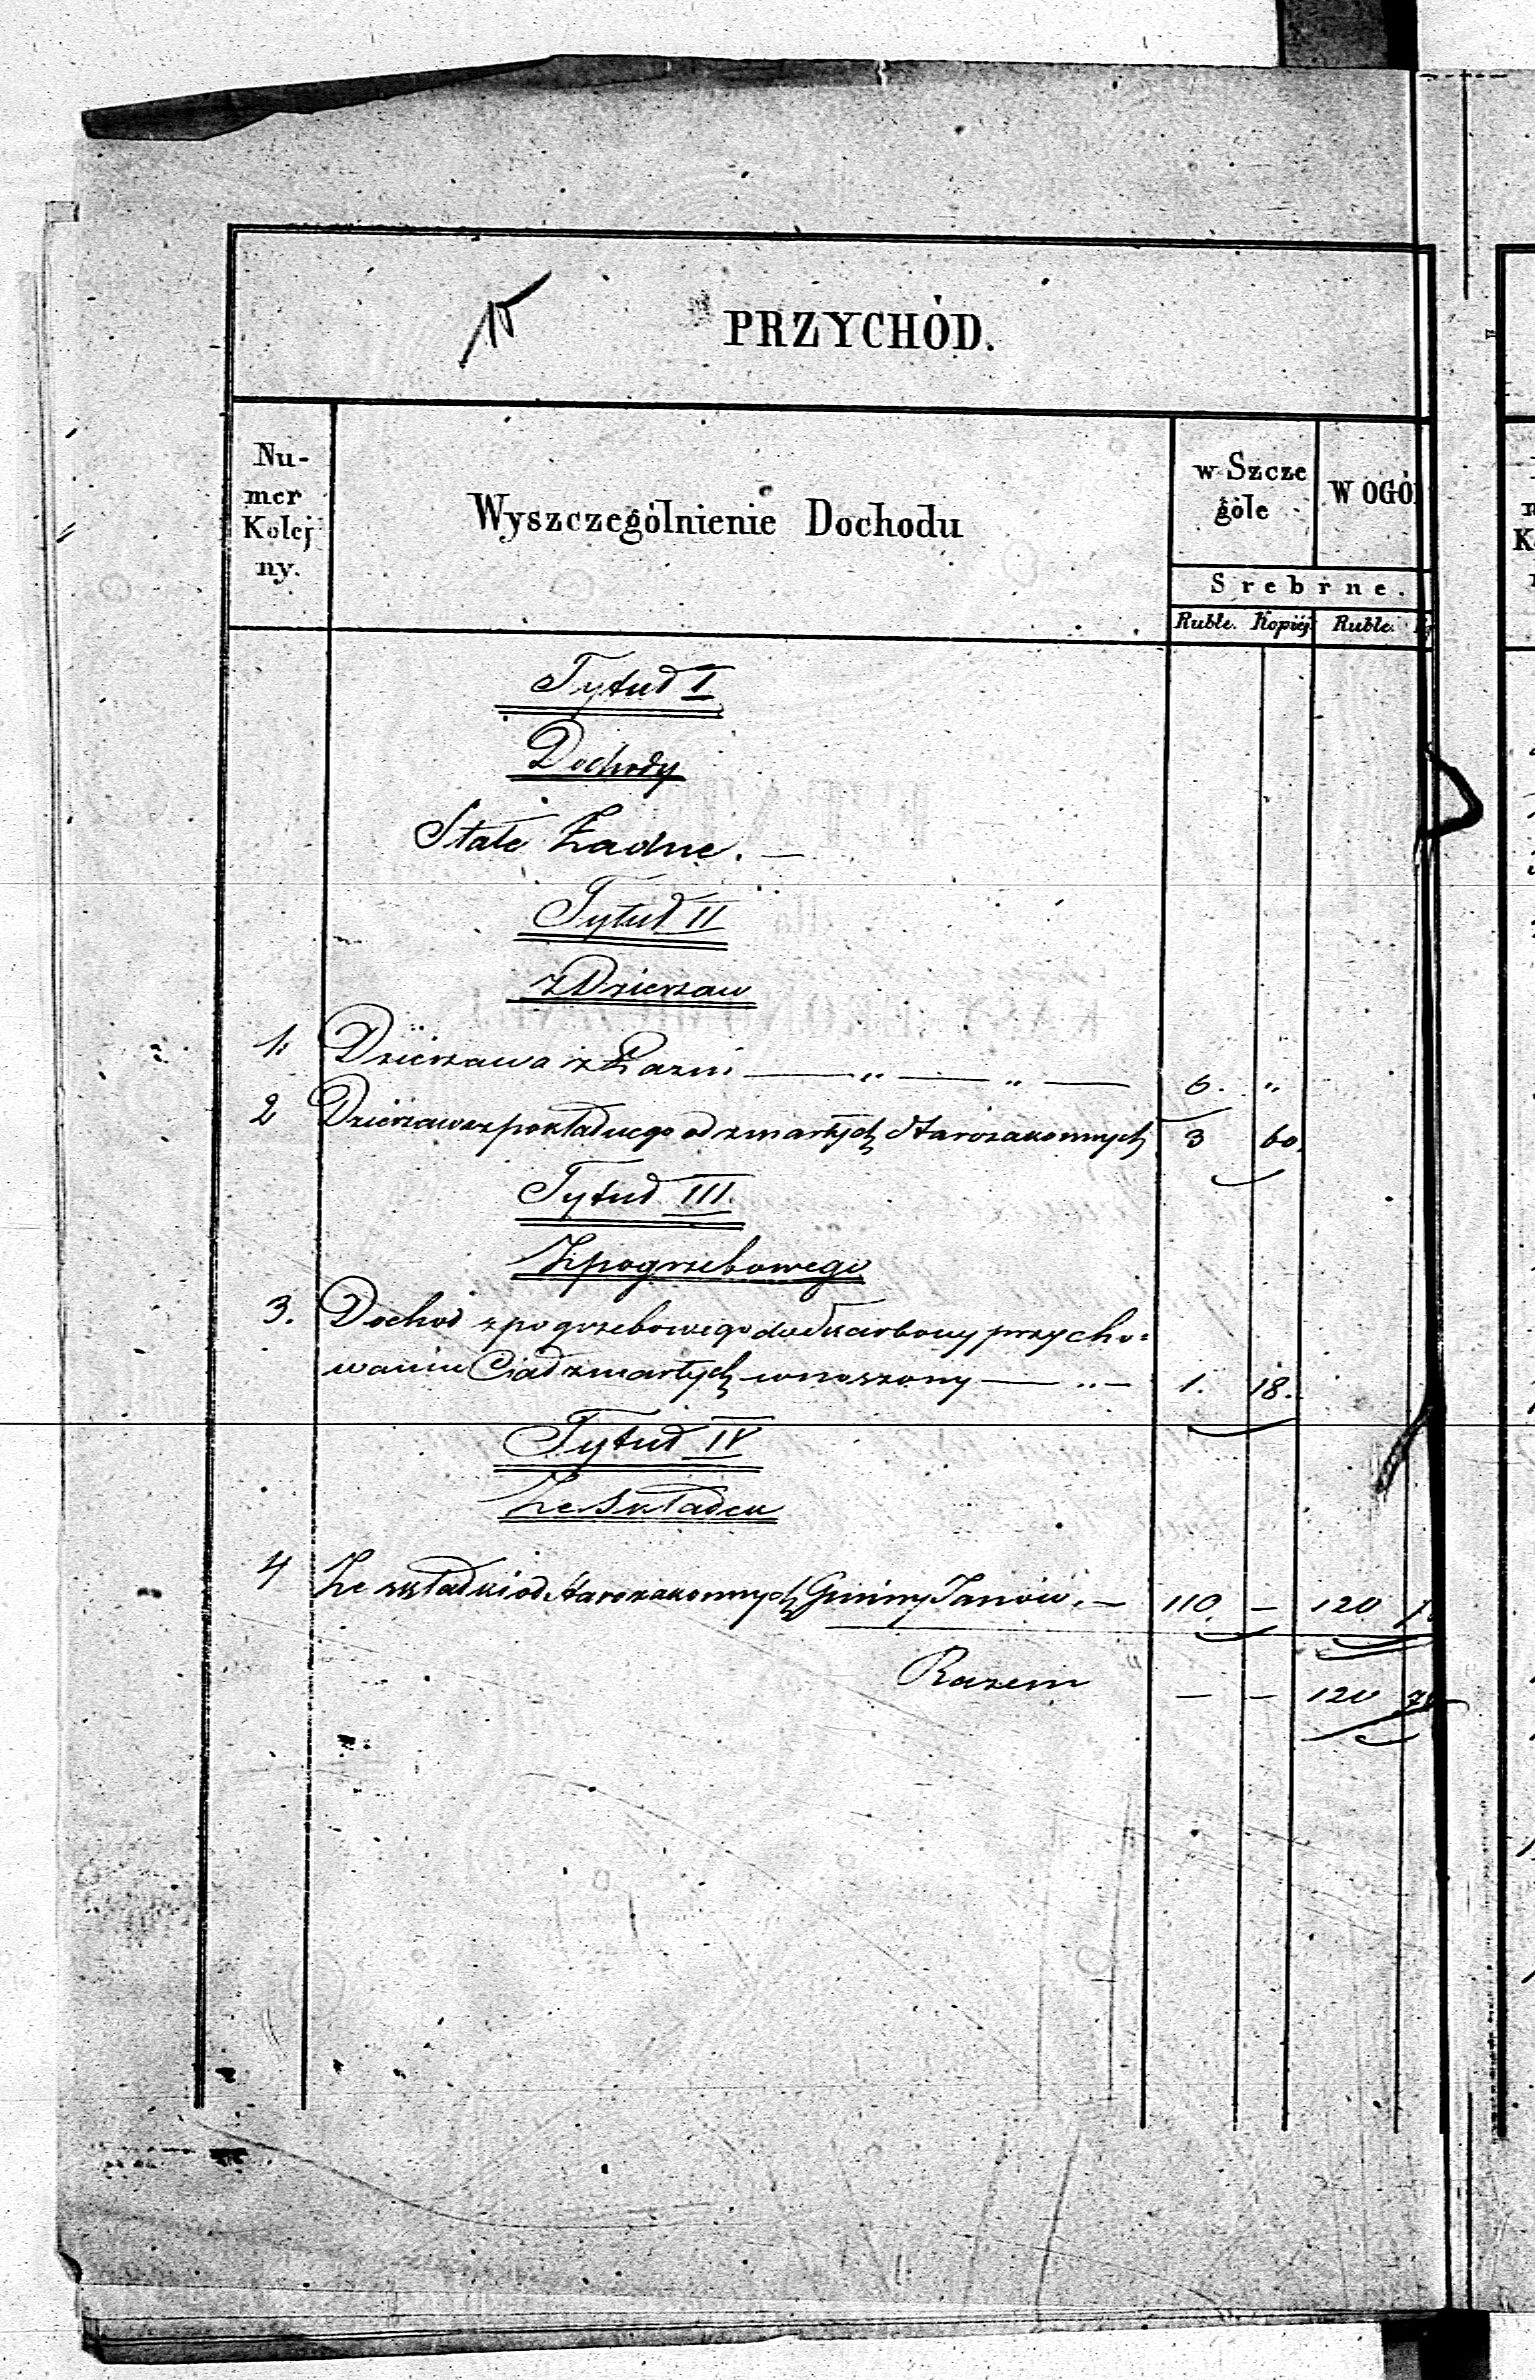 PRZYCHÓD.
Nu-
mer
Kolej
ny.
Wyszczególnienie Dochodu
w Szcze
góle
W OGÓ
Srebrne.
Ruble. Kopiej Ruble.
Tytuł I
Dochody
Stałe Żadne. —
Tytuł II
z Dzierżaw
1. Dzierżawa z Łaźni — „ — „ — 6. „
2 Dzierżawa z pokładnego od zmarłych Starozakonnych 3 60.
Tytuł III.
Z pogrzebowego
3. Dochód z pogrzebowego do Skarbony przy cho-
waniu Ciał zmarłych wnoszony — „ — 1. 18.
Tytuł IV
Ze Składek
4 Ze składki od Starozakonnych Gminy Janów. — 110. — 120
Razem — — 120